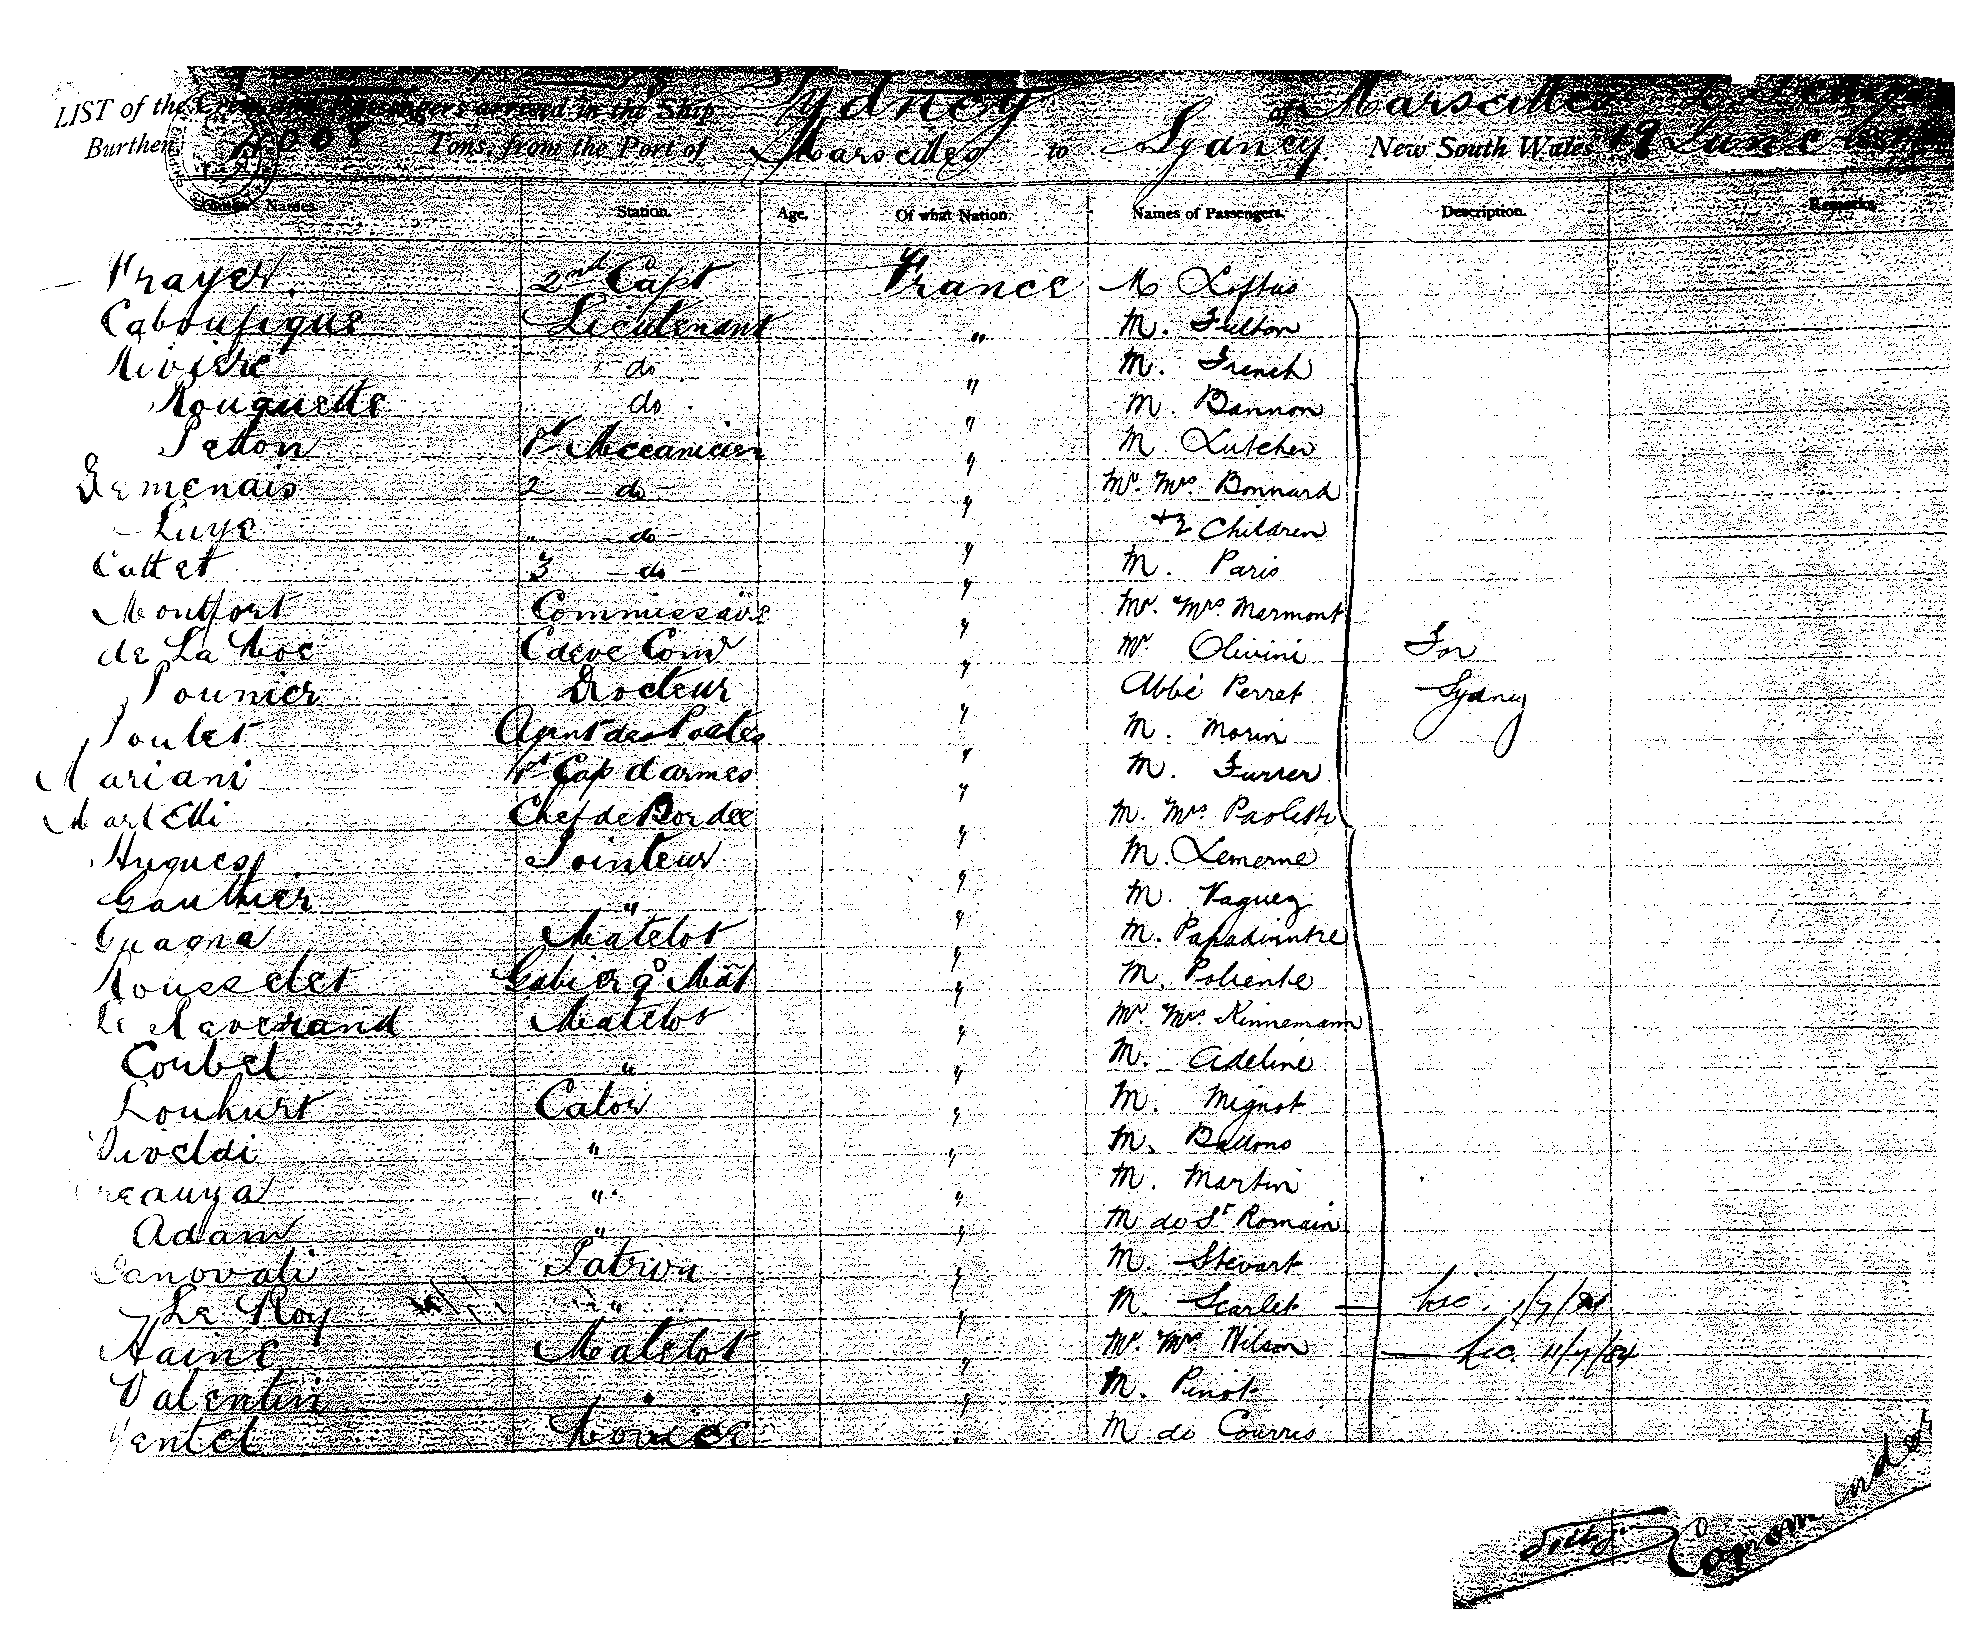 LIST of the Crew and Passengers arrived in the Ship Sydney of Marseilles
Burthen Tons, from the Port of Marseilles to Sydney New South Wales 19 June
Names Station. Age. Of what Nation. Names of Passengers. Description. Remarks
Frayer 2nd Capt France M Loftus
Caboufigue Lieutenant " M. Fulton
Rivière do " M. French
Rouquette do " M. Bannon
Petton 1er Mecanicien " M Lutcher
Demenais 2 do " Mr. Mrs Bonnard
Luye " do " + 2 Children
Cattet 3 do " M. Paris
Montfort Commissaire " Mr. Mrs Marmont
de La Roc " Mr Olivini For
Pounier Docteur " Abbé Perret Sydney
Poulet Agent des Postes " M. Morin
Mariani 1er Cap d'armes " M. Furrer
Martelli Chef de Bordée " M. Mrs Paoletti
Hugues Pointeur " M. Lemerne
Gauthier " " M. Vaguez
Guagna Matelot " M. Papadimitre
Rousselet Gabier " M. Poliente
Le Reverand Matelot " Mr Mrs Kinnemann
Coubel " " M. Adeline
Louhurt Calou " M. Mignot
Vivoldi " " M. Ballons
" " M. Martin
Adam " " M de St Romain
Canovali Patron " M. Stevart
Le Roy " " M. Scarlet 1/7/84
Haine Matelot " Mr. Mrs Wilson 11/7/84
Valentin " " M. Pinot
Ventel Novice " M de Courris
Commandant